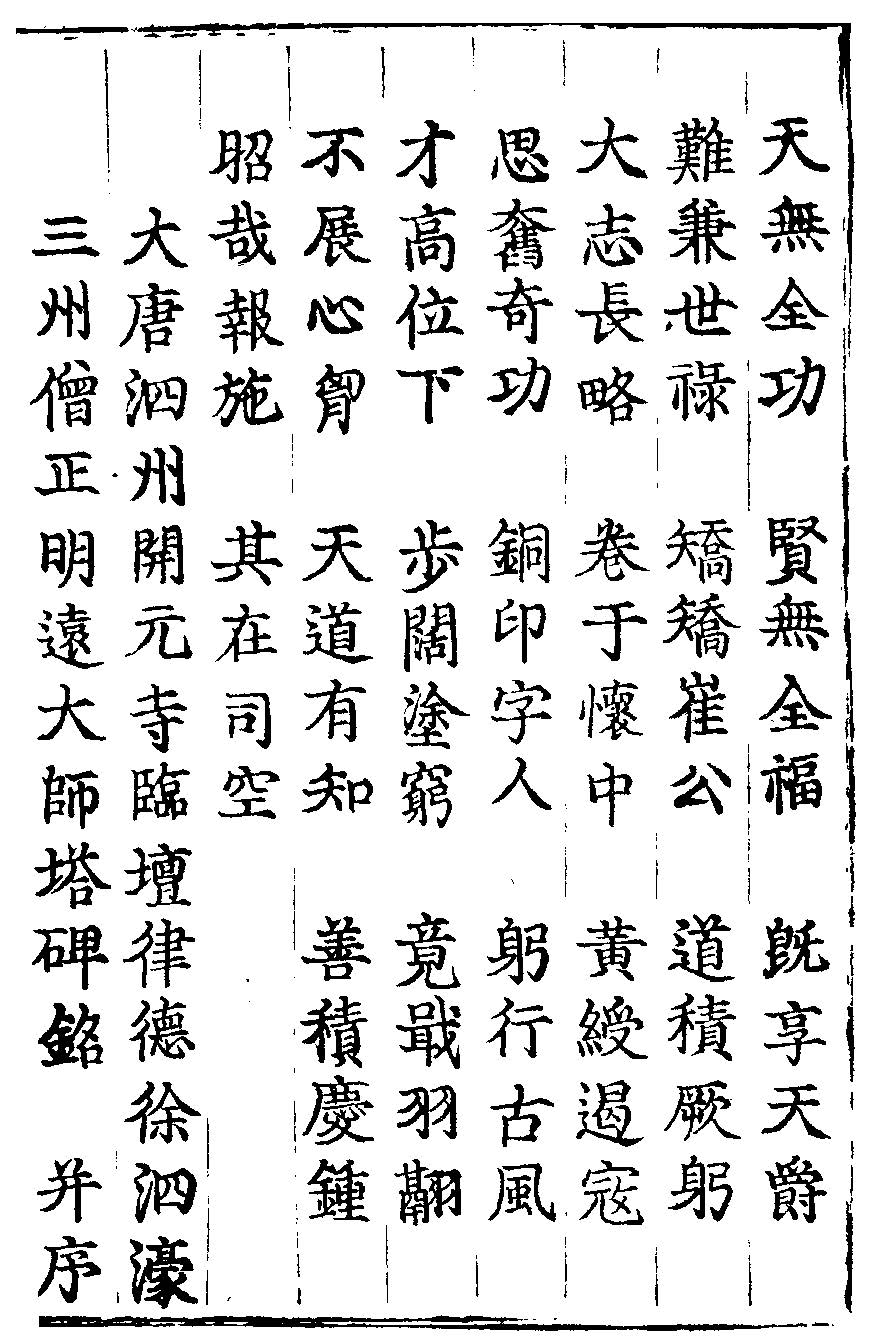 天無全功　賢無全福　旣享天爵
難兼世祿　矯矯崔公　道積厥躬
大志長略　卷于懷中　黃綬遏寇
思奮奇功　銅印字人　躬行古風
才高位下　步闊塗窮　竟戢羽翮
不展心胷　天道有知　善積慶鍾
昭哉報施　其在司空
大唐泗州開元寺臨壇律德徐泗濠
三州僧正明遠大師塔碑銘　并序